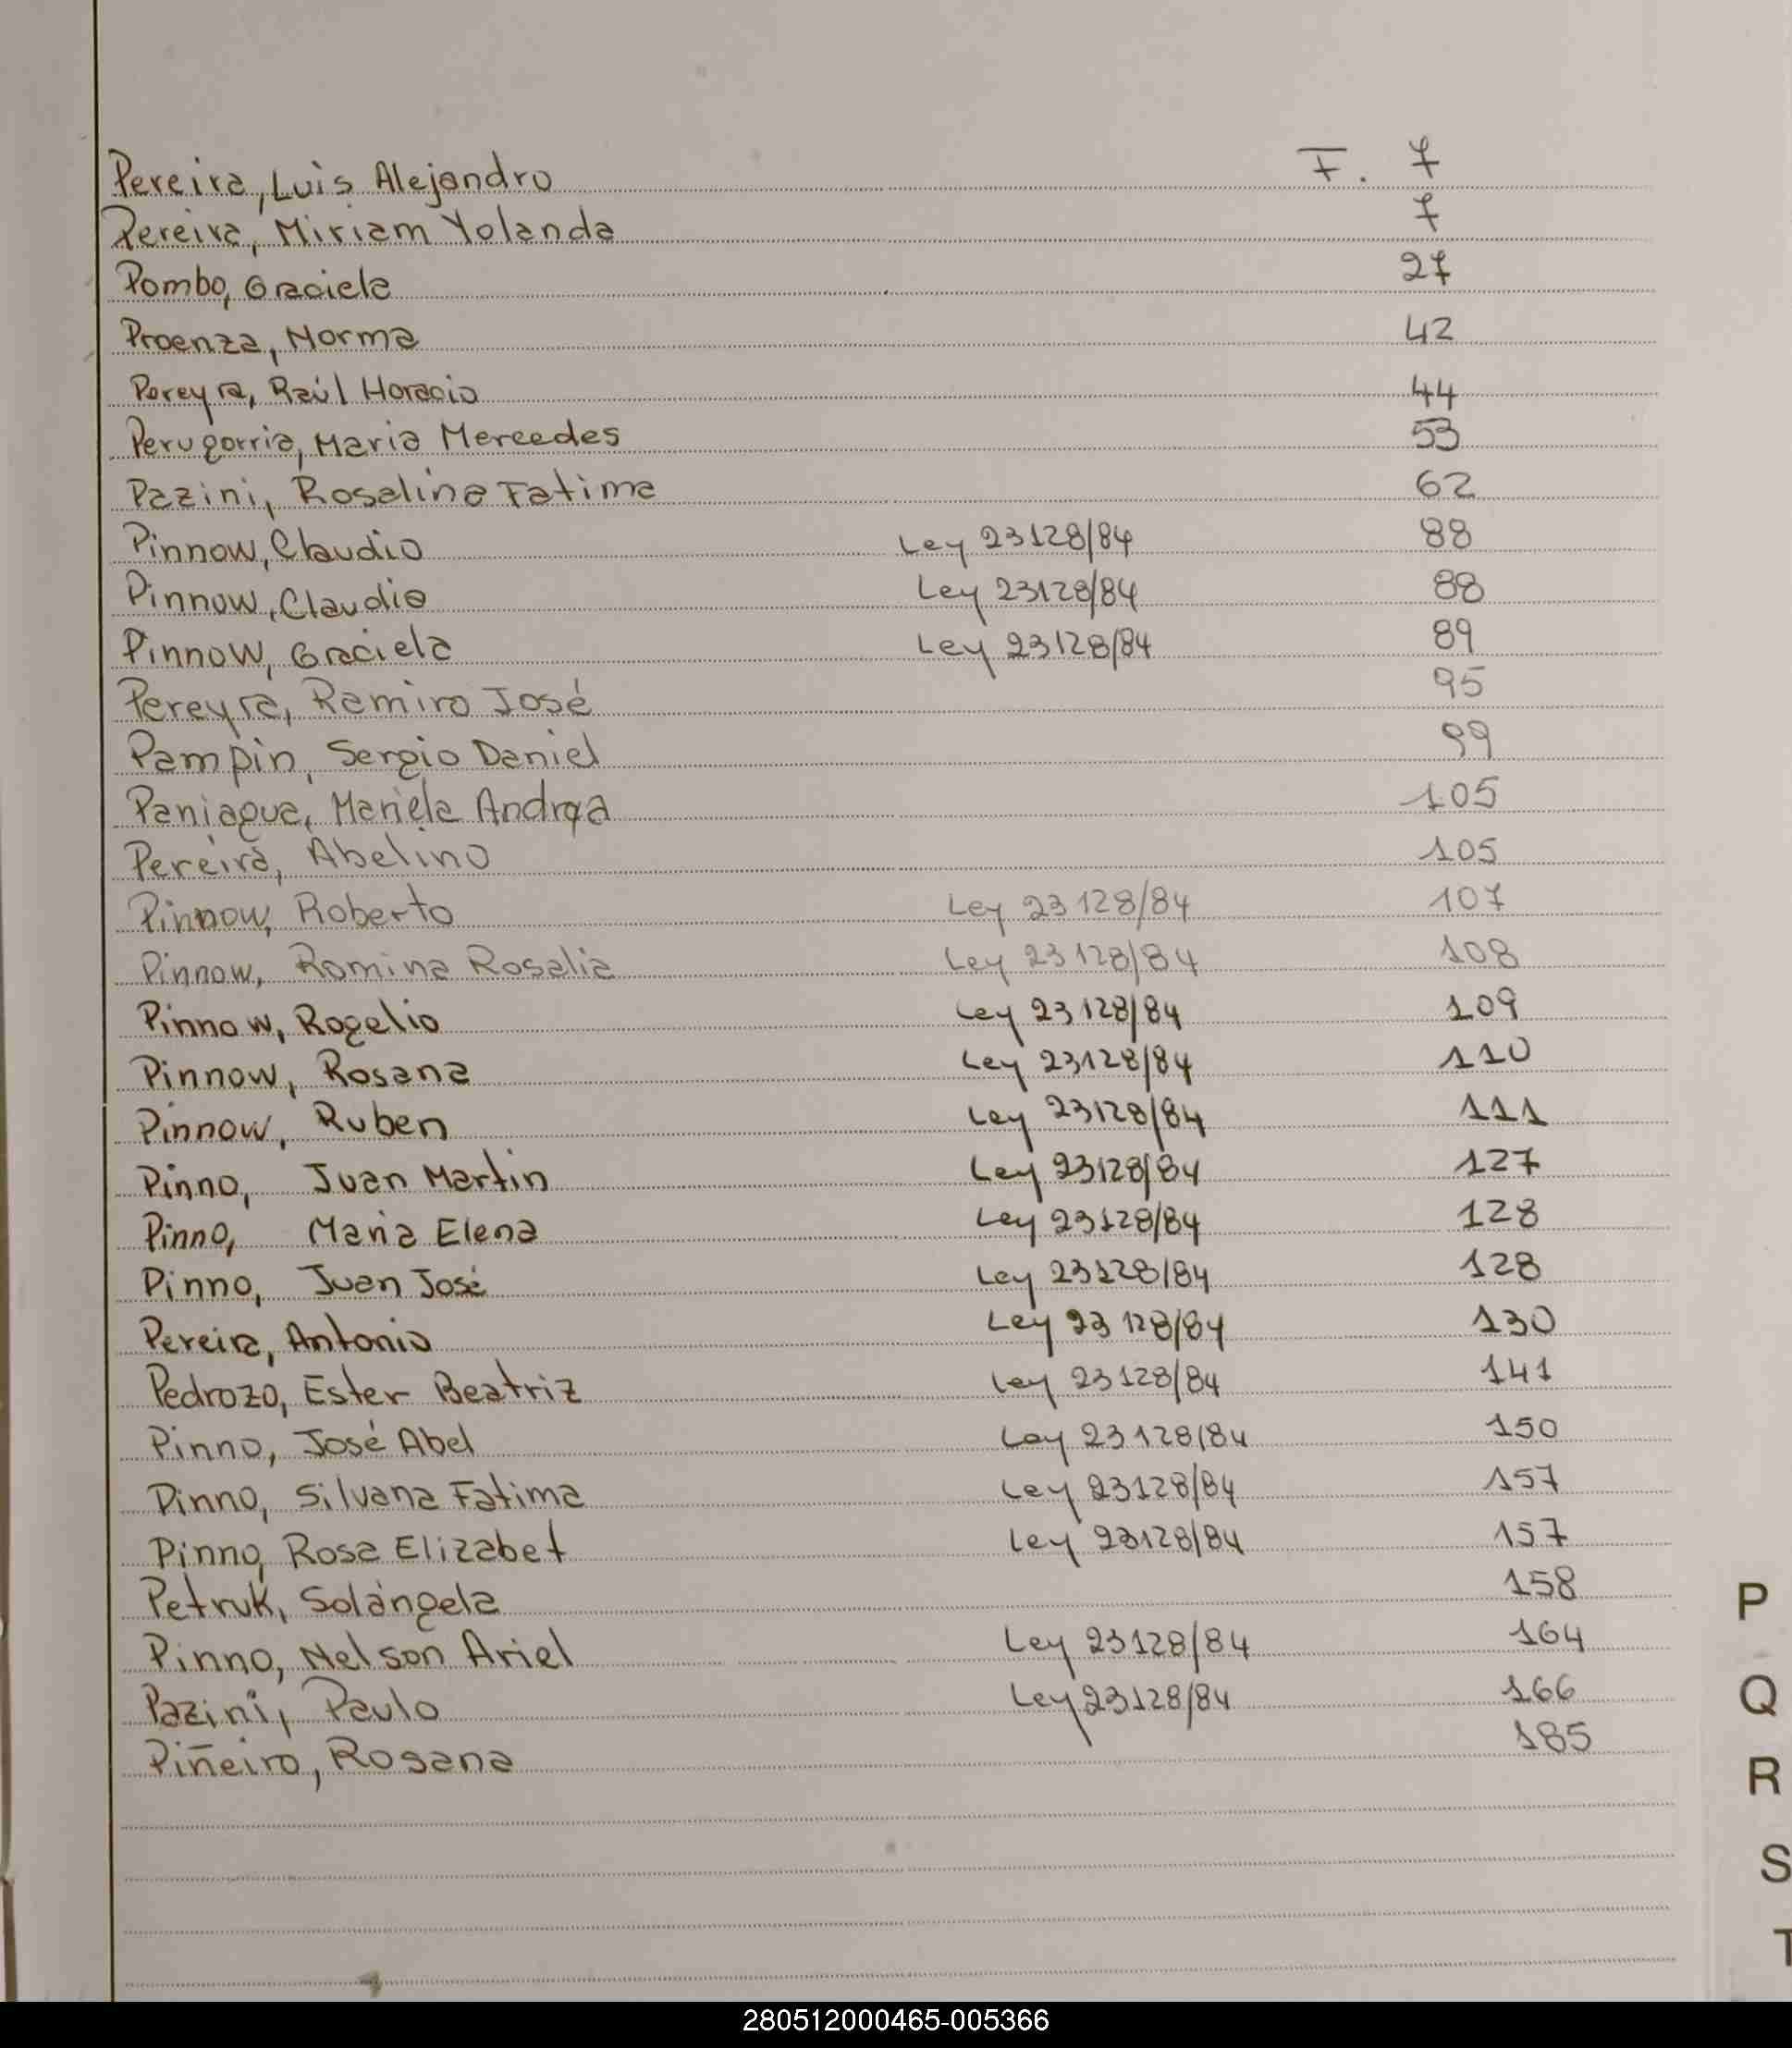 Pereira, Luis Alejandro F. 7
Pereira, Miriam Yolanda 7
Pombo, Graciela 27
Proenza, Norma 42
Pereyra, Raúl Horacio 44
Perugorria, Maria Mercedes 53
Pazini, Rosalina Fatima 62
Pinnow, Claudio Ley 23128/84 88
Pinnow, Claudia Ley 23128/84 88
Pinnow, Graciela Ley 23128/84 89
Pereyra, Ramiro José 95
Pampin, Sergio Daniel 99
Paniagua, Mariela Andrea 105
Pereira, Abelino 105
Pinnow, Roberto Ley 23128/84 107
Pinnow, Romina Rosalia Ley 23128/84 108
Pinnow, Rogelio Ley 23128/84 109
Pinnow, Rosana Ley 23128/84 110
Pinnow, Ruben Ley 23128/84 111
Pinno, Juan Martin Ley 23128/84 127
Pinno, Maria Elena Ley 23128/84 128
Pinno, Juan José Ley 23128/84 128
Pereira, Antonio Ley 23128/84 130
Pedrozo, Ester Beatriz Ley 23128/84 141
Pinno, José Abel Ley 23128/84 150
Pinno, Silvana Fatima Ley 23128/84 157
Pinno, Rosa Elizabet Ley 23128/84 157
Petruk, Solángela 158
Pinno, Nelson Ariel Ley 23128/84 164
Pazini, Paulo Ley 23128/84 166
Piñeiro, Rosana 185
P
Q
R
S
T
280512000465-005366